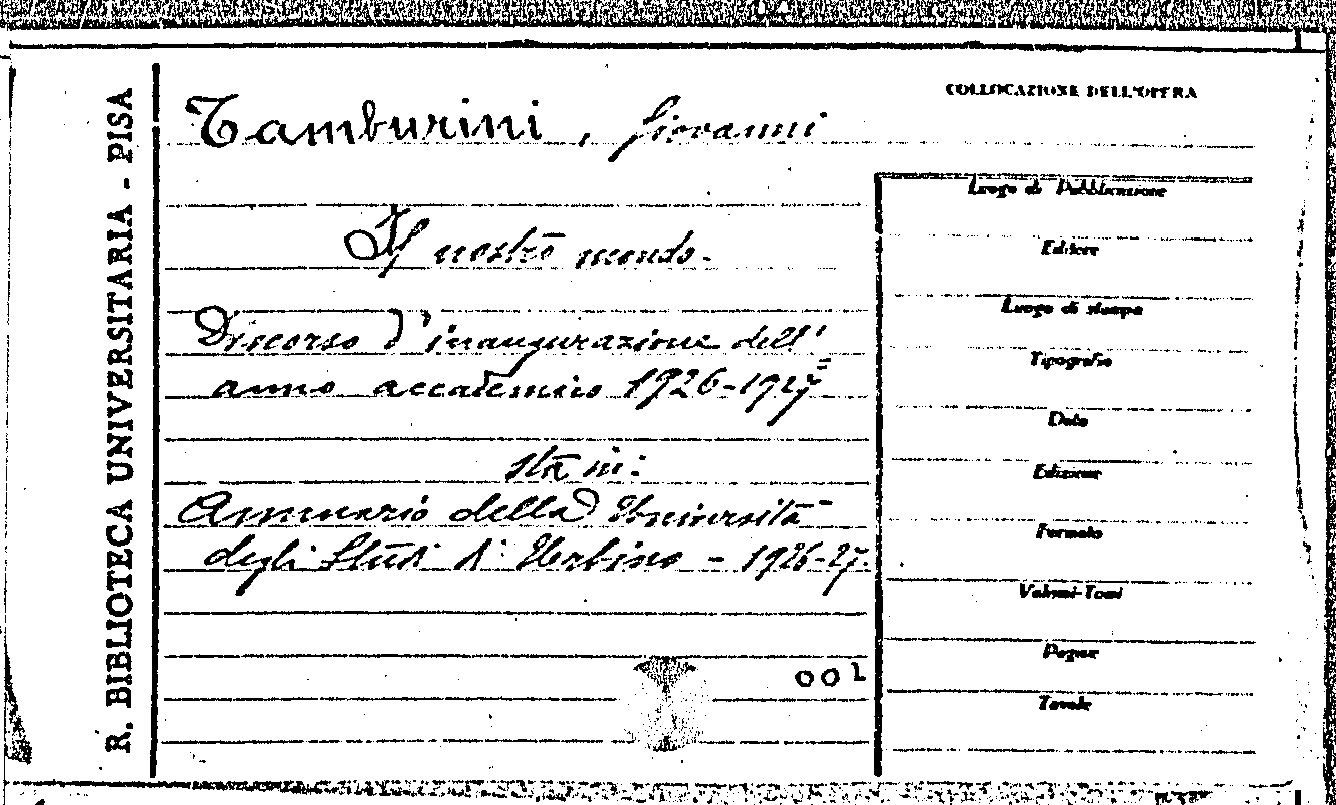 R. BIBLIOTECA UNIVERSITARIA - PISA
COLLOCAZIONE DELL'OPERA
Tamburini, Giovanni
Il nostro mondo.
Discorso d'inaugurazione dell'
anno accademico 1926-1927
sta in:
Annuario della Università
degli Studi di Urbino - 1926-27.
001
Luogo di Pubblicazione
Editore
Luogo di stampa
Tipografio
Data
Edizione
Formato
Volumi-Tomi
Pagine
Tavole